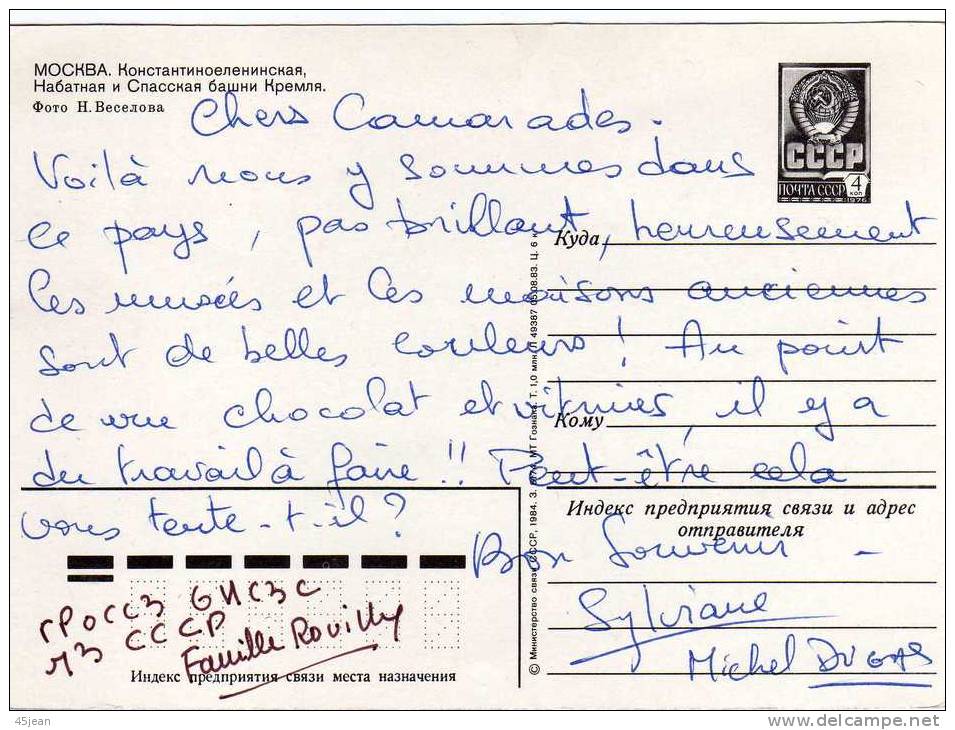 МОСКВА. Константиноеленинская,
Набатная и Спасская башни Кремля.
Фото Н. Веселова
Chers Camarades.
Voilà nous y sommes dans
ce pays, pas brillant, heureusement
les musées et les maisons anciennes
sont de belles couleurs ! Au point
de vue chocolat et vitrines, il y a
du travail à faire !! Peut-être cela
vous tente-t-il ?
Bon Souvenir -
Sylviane
Michel DUGAS
гРОССЗ БИСЗС
ИЗ СССР
Famille Rouilly
СССР
ПОЧТА СССР 4 КОП
1976
Куда
Кому
Индекс предприятия связи и адрес
отправителя
Индекс предприятия связи места назначения
© Министерство связи СССР, 1984. З. МТ Гознака. Т. 1,0 млн. Л 49387 05.08.83. Ц. 6 к.
45jean
delcampe.net